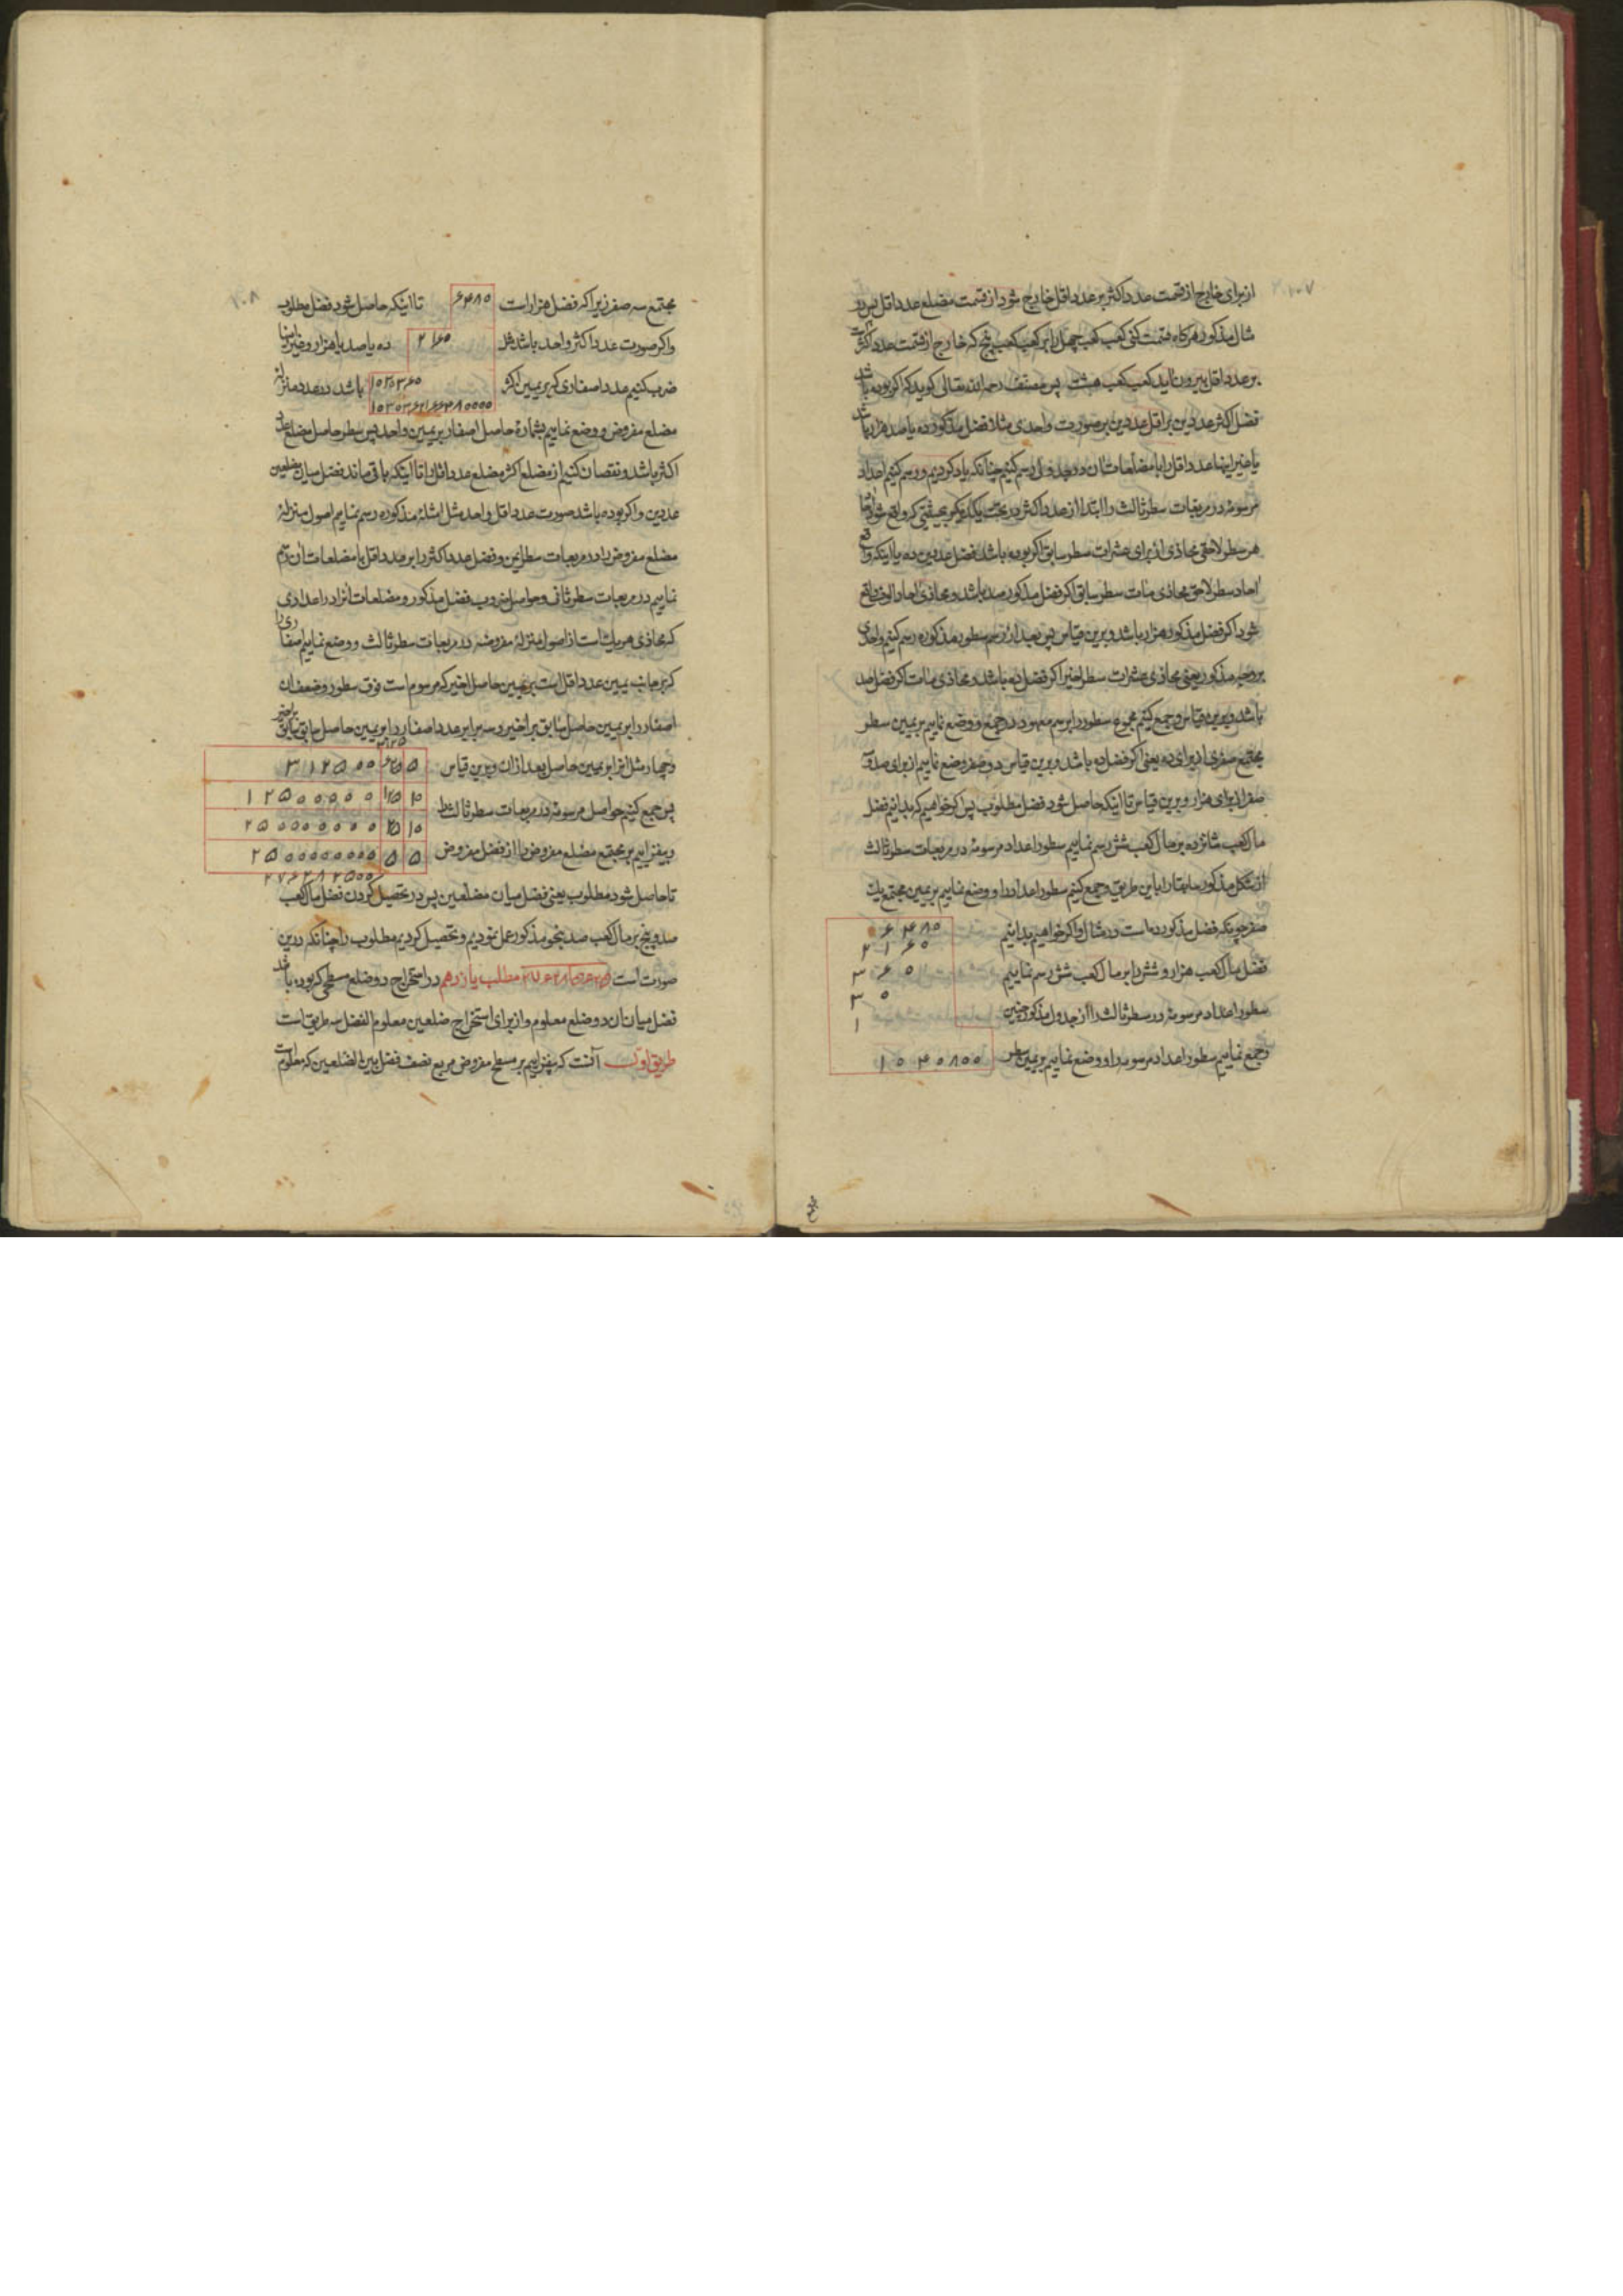 ۲۰۱۰۷
از برای خارج از قسمت عدد اکثر بر عدد اقل خارج شود از قسمت مضلع عدد اقل پس در
مثال مذکور هرگاه قسمت کنی کعب کعب چهل را بر کعب کعب پنج که خارج از قسمت عدد اکثر است
بر عدد اقل بیرون نماید کعب کعب هشت پس مصنف رحمه الله تعالی کوید که اکر بوده باشد
فضل اکثر عددین بر اقل عددین بر صورت واحدی مثلا فضل مذکور ده یا صد هزار باشد
یا غیر اینها عدد اقل را با مضلعات آن در جدول رسم کنیم چنانکه یاد کردیم و رسم کنیم اعداد
مرسومه در مربعات سطر ثالث را ابتدا از عدد اکثر در تحت یکدیگر بحیثیتی که واقع شود
هر سطر لاحقی محاذی از برای عشرات سطر سابق اکر بوده باشد فضل عددین ده یا اینکه واقع
احاد سطر لاحق محاذی مئات سطر سابق اکر فضل مذکور صد باشد و محاذی احاد الوف واقع
شود اکر فضل مذکور هزار باشد و برین قیاس پس بعد از رسم سطور مذکوره رسم کنیم واحدی
بر وجه مذکور یعنی محاذی عشرات سطر اخیر اکر فضل ده باشد و محاذی مئات اکر فضل صد
باشد و برین قیاس و جمع کنیم مجموع سطور را برسم معهود در جمع و وضع نماییم بر یمین سطر
مجتمع صفری از برای ده یعنی اکر فضل ده باشد و برین قیاس دو صفر وضع نماییم از برای صد و سه
صفر از برای هزار و برین قیاس تا اینکه حاصل شود فضل مطلوب پس اکر خواهیم که بدانیم فضل
مال کعب شانزده بر مال کعب شش رسم نماییم سطور اعداد مرسومه در مربعات سطر ثالث
از شکل مذکور سابقا را باین طریق و جمع کنیم سطور اعداد را و وضع نماییم بر یمین مجتمع یک
صفر چونکه فضل مذکور ده است در مثال و اکر خواهیم بدانیم
۶۴۸۰
۲۱۶۰
فضل مال کعب هزار و شش را بر مال کعب شش رسم نماییم
۳۶۰
۳۰
سطور اعداد مرسومه در سطر ثالث را از جدول مذکور چنین
۱
و جمع نماییم سطور اعداد مرسومه را و وضع نماییم بر یمین سطر
۱۰۴۰۸۰۰
۱۰۸
مجتمع سه صفر زیرا که فضل هزار است ۶۴۸۰ تا اینکه حاصل شود فضل مطلوب
و اکر صورت عدد اکثر واحد باشد مثل ۲۱۶۰ ده یا صد یا هزار و غیر اینها
ضرب کنیم عدد اصفاری که بر یمین اکثر ۱۰۳۰۳۶۰ باشد در عدد منزله
۱۰۳۰۳۶۲۱۶۶۴۸۰۰۰۰
مضلع مفروض و وضع نماییم بشماره حاصل اصفار بر یمین واحد پس سطر حاصل مضلع عدد
اکثر باشد و نقصان کنیم از مضلع اکثر مضلع عدد اقل را تا اینکه باقی ماند فضل میان مضلعین
عددین و اکر بوده باشد صورت عدد اقل واحد مثل امثله مذکوره رسم نماییم اصول منزله
مضلع مفروض را در مربعات سطر ایمن و فضل عدد اکثر را بر عدد اقل با مضلعات آن رسم
نماییم در مربعات سطر ثانی و حواصل ضروب فضل مذکور و مضلعات آنرا در اعدادی
که محاذی هر یک است از اصول منزله مفروضه در مربعات سطر ثالث و وضع نماییم اصفاری را
که بر جانب یمین عدد اقل است بر یمین حاصل اخیر که مرسوم است فوق سطور و ضعف آن
اصفار را بر یمین حاصل سابق بر اخیر و سه برابر عدد اصفار را بر یمین حاصل سابق سابق بر اخیر
و چهار مثل آنرا بر یمین حاصل بعد از آن و برین قیاس
۵ ۶۲۵ ۳۱۲۵۰۰
۱۰ ۱۲۵ ۱۲۵۰۰۰۰۰
پس جمع کنیم حواصل مرسومه در مربعات سطر ثالث را
۱۰ ۲۵ ۲۵۰۰۰۰۰۰۰
و بیفزاییم بر مجتمع مضلع مفروض را از فضل مفروض
۵ ۵ ۲۵۰۰۰۰۰۰۰۰
۲۷۶۲۸۲۵۰۰
تا حاصل شود مطلوب یعنی فضل میان مضلعین پس در تحصیل کردن فضل مال کعب
صد و پنج بر مال کعب صد بنحو مذکور عمل نمودیم و تحصیل کردیم مطلوب را چنانکه درین
صورت است ۲۷۶۲۸۱۵۶۲۵ مطلب یازدهم در استخراج دو ضلع مسطحی که بوده باشد
فضل میان آن دو ضلع معلوم و از برای استخراج ضلعین معلوم الفضل سه طریق است
طریق اول آنست که بیفزاییم بر مسطح مفروض مربع نصف فضل بین الضلعین که معلوم است